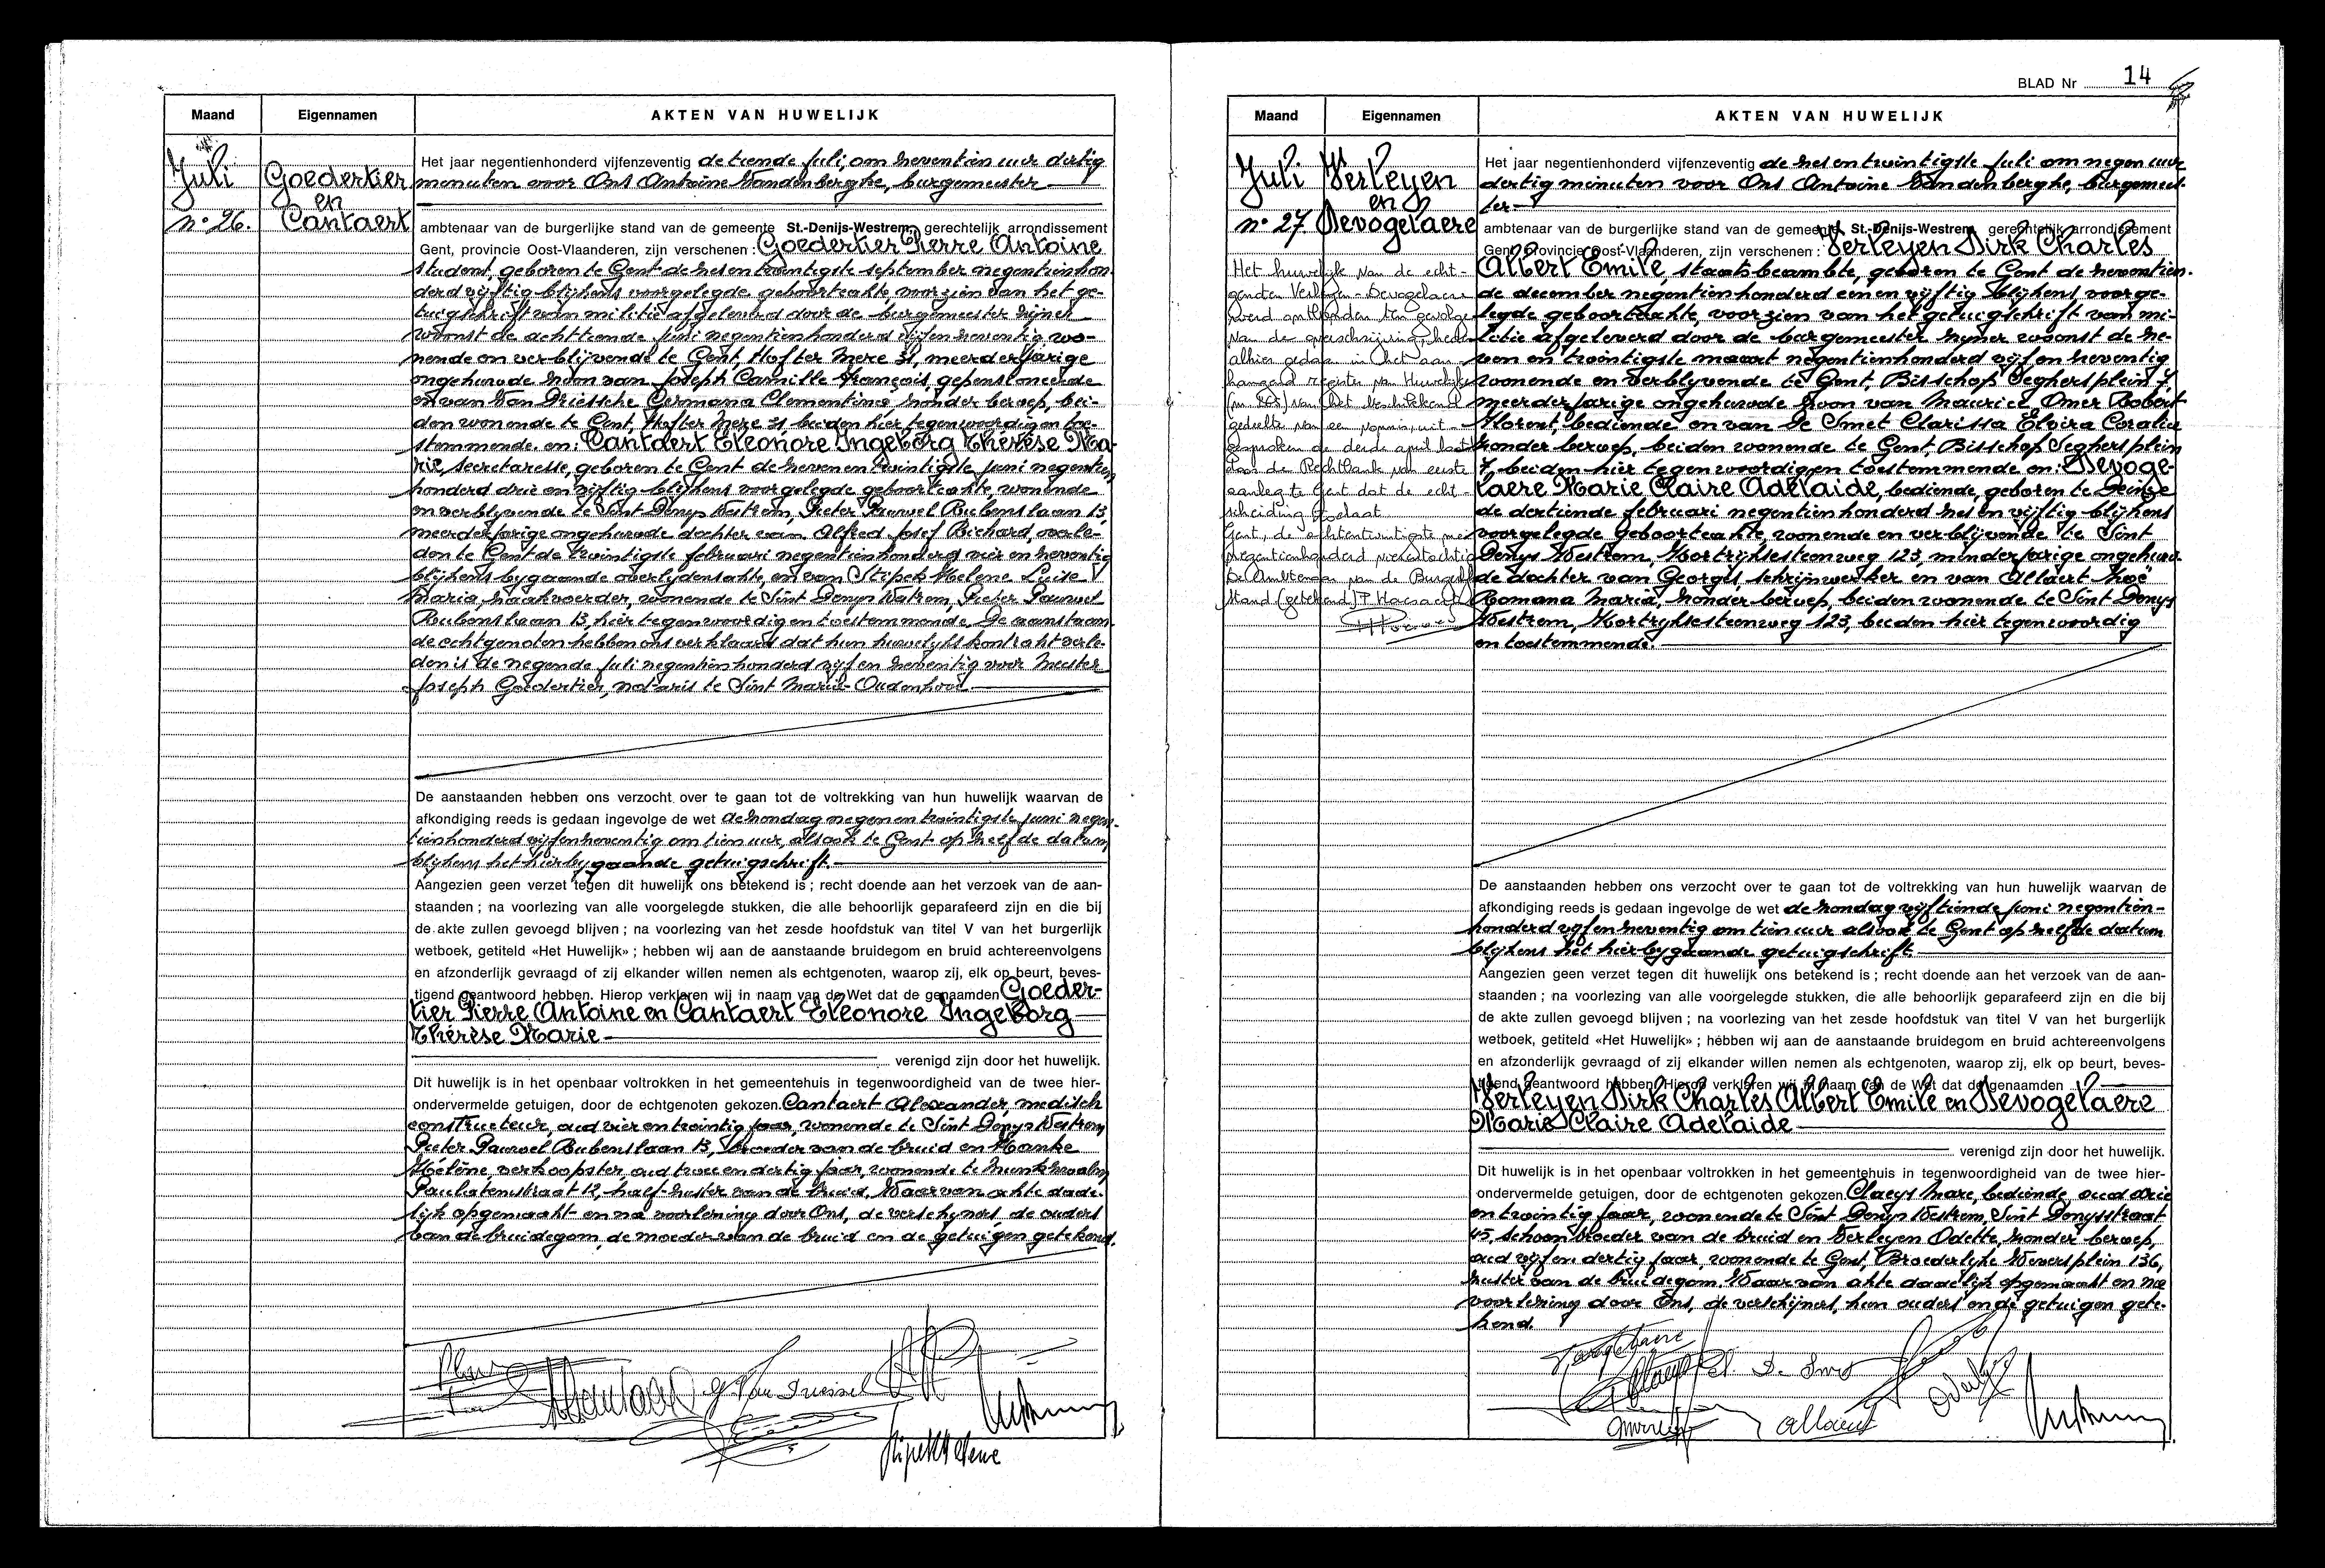 Maand
Eigennamen
AKTEN VAN HUWELIJK
Juli
n° 26.
Goedertier
en
Cantaert
Het jaar negentienhonderd vijfenzeventig de tiende Juli, om zeventien uur dertig
minuten voor Ons Antoine Vandenberghe, burgemeester
ambtenaar van de burgerlijke stand van de gemeente St.-Denijs-Westrem, gerechtelijk arrondissement
Gent, provincie Oost-Vlaanderen, zijn verschenen : Goedertier Pierre Antoine
student, geboren te Gent de zesentwintigste september negentienhon-
derd vijftig blijkens voorgelegde geboorteakte, voorzien van het ge-
tuigschrift van militie afgeleverd door de burgemeester zijner
woonst de achttiende Juni negentienhonderd vijfenzeventig wo-
nende en verblijvende te Gent, Hofter Mere 31, meerderjarige
ongehuwde zoon van Joseph Camille François, gepensioneerde
en van Van Driessche Germana Clementina, zonder beroep, bei-
den wonende te Gent, Hofter Mere 31 beiden hier tegenwoordig en toe-
stemmende. en: Cantaert Eleonore Ingeborg Thérèse Ma-
rie, secretaresse, geboren te Gent de zevenentwintigste Juni negentien
honderd drie en vijftig blijkens voorgelegde geboorteakte, wonende
en verblijvende te Sint Denys Westrem, Pieter Pauwel Rubenslaan 13,
meerderjarige ongehuwde dochter van Alfred Josef Richard, overle-
den te Gent de twintigste februari negentienhonderd vier en zeventig
blijkens bygaande overlydensakte, en van Stipek Helene Luise
Maria, zaakvoerder, wonende te Sint Denys Westrem, Pieter Pauwel
Rubenslaan 13, hier tegenwoordig en toestemmende. De aanstaan-
de echtgenoten hebben ons verklaard dat hun huwelijkskontrakt verle-
den is de negende Juli negentienhonderd vijf en zeventig voor Meester
Joseph Goedertier, notaris te Sint Maria-Oudenhove
De aanstaanden hebben ons verzocht over te gaan tot de voltrekking van hun huwelijk waarvan de
afkondiging reeds is gedaan ingevolge de wet de zondag negen en twintigste Juni negen-
tienhonderd vijfenzeventig om tien uur, alsook te Gent op zelfde datum
blijkens het hierbygaande getuigschrift.
Aangezien geen verzet tegen dit huwelijk ons betekend is ; recht doende aan het verzoek van de aan-
staanden ; na voorlezing van alle voorgelegde stukken, die alle behoorlijk geparafeerd zijn en die bij
de akte zullen gevoegd blijven ; na voorlezing van het zesde hoofdstuk van titel V van het burgerlijk
wetboek, getiteld «Het Huwelijk» ; hebben wij aan de aanstaande bruidegom en bruid achtereenvolgens
en afzonderlijk gevraagd of zij elkander willen nemen als echtgenoten, waarop zij, elk op beurt, beves-
tigend geantwoord hebben. Hierop verklaren wij in naam van de Wet dat de genaamden Goeder-
tier Pierre Antoine en Cantaert Eleonore Ingeborg
Thérèse Marie
verenigd zijn door het huwelijk.
Dit huwelijk is in het openbaar voltrokken in het gemeentehuis in tegenwoordigheid van de twee hier-
ondervermelde getuigen, door de echtgenoten gekozen. Cantaert Alexander, medisch
constructeur, oud vier en twintig jaar, wonende te Sint Denys Westrem
Pieter Pauwel Rubenslaan 13, broeder van de bruid en Hanke
Hélène, verkoopster, oud twee en dertig jaar, wonende te Munkzwalm
Paulatemstraat 12, half-zuster van de bruid. Waarvan akte dade-
lijk opgemaakt en na voorlezing door Ons, de verschijners, de ouders
van de bruidegom, de moeder van de bruid en de getuigen getekend.
G. Van Driessche
Stipek Helene
BLAD Nr 14
Maand
Eigennamen
AKTEN VAN HUWELIJK
Juli
n° 27.
Verleyen
en
Devogelaere
Het huwelijk van de echt-
genoten Verleyen-Devogelaere
werd ontbonden ten gevolge
van de overschrijving, heden
alhier gedaan in het aan-
hangend register van Huwelijken
van het beschikkend
gedeelte van een vonnis, uit-
gesproken de derde april laatst
door de Rechtbank van eerste
aanleg te Gent dat de echt-
scheiding toelaat
Gent, de achtentwintigste mei
negentienhonderd
De Ambtenaar van de Burgerlijke
Stand (getekend)
Het jaar negentienhonderd vijfenzeventig de zesentwintigste Juli om negen uur
dertig minuten voor Ons Antoine Vandenberghe, burgemees-
ter
ambtenaar van de burgerlijke stand van de gemeente St.-Denijs-Westrem, gerechtelijk arrondissement
Gent, provincie Oost-Vlaanderen, zijn verschenen : Verleyen Dirk Charles
Albert Emile, staatsbeambte, geboren te Gent de zeventien-
de december negentienhonderd een en vijftig blijkens voorge-
legde geboorteakte, voorzien van het getuigschrift van mi-
litie afgeleverd door de burgemeester zijner woonst de ze-
ven en twintigste maart negentienhonderd vijf en zeventig
wonende en verblyvende te Gent, Bisschop Seghersplein 7,
meerderjarige ongehuwde zoon van Maurice Omer Robert
Florent, bediende en van De Smet Clarissa Elvira Coralie
zonder beroep, beiden wonende te Gent, Bisschop Seghersplein
7, beiden hier tegenwoordig en toestemmende en: Devoge-
laere Marie Claire Adelaide, bediende, geboren te Deinze
de dertiende februari negentienhonderd zes en vijftig blijkens
voorgelegde geboorteakte, wonende en verblijvende te Sint
Denys Westrem, Kortrijksesteenweg 123, minderjarige ongehuw-
de dochter van Georges schrijnwerker en van Allaert Zoë
Romana Maria, zonder beroep, beiden wonende te Sint Denys
Westrem, Kortryksesteenweg 123, beiden hier tegenwoordig
en toestemmende.
De aanstaanden hebben ons verzocht over te gaan tot de voltrekking van hun huwelijk waarvan de
afkondiging reeds is gedaan ingevolge de wet de zondag vijftiende Juni negentien-
honderd vijfenzeventig om tien uur alsook te Gent op zelfde datum
blijkens het hierbygaande getuigschrift.
Aangezien geen verzet tegen dit huwelijk ons betekend is ; recht doende aan het verzoek van de aan-
staanden ; na voorlezing van alle voorgelegde stukken, die alle behoorlijk geparafeerd zijn en die bij
de akte zullen gevoegd blijven ; na voorlezing van het zesde hoofdstuk van titel V van het burgerlijk
wetboek, getiteld «Het Huwelijk» ; hebben wij aan de aanstaande bruidegom en bruid achtereenvolgens
en afzonderlijk gevraagd of zij elkander willen nemen als echtgenoten, waarop zij, elk op beurt, beves-
tigend geantwoord hebben. Hierop verklaren wij in naam van de Wet dat de genaamden
Verleyen Dirk Charles Albert Emile en Devogelaere
Marie Claire Adelaide
verenigd zijn door het huwelijk.
Dit huwelijk is in het openbaar voltrokken in het gemeentehuis in tegenwoordigheid van de twee hier-
ondervermelde getuigen, door de echtgenoten gekozen. Claeys Marc, bediende, oud drie
en twintig jaar, wonende te Sint Denys Westrem, Sint Denysstraat
45, schoonbroeder van de bruid en Verleyen Odette, zonder beroep,
oud vijf en dertig jaar, wonende te Gent, Broederlijke Weversplein 136,
zuster van de bruidegom. Waarvan akte dadelijk opgemaakt en na
voorlezing door Ons, de verschijners, hun ouders en de getuigen gete-
kend.
Cl. De Smet
Allaert